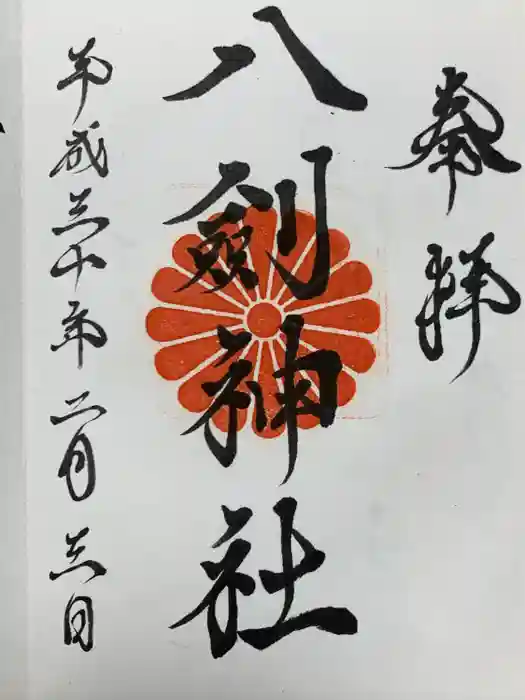 奉拝
八剱神社
平成三十年二月六日